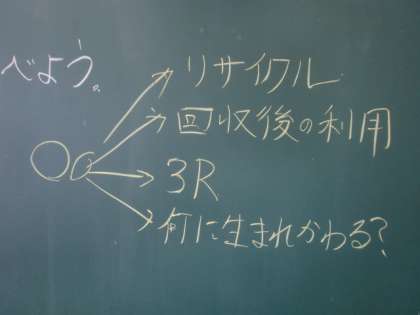 べよう。
リサイクル
回収後の利用
3R
何に生まれかわる?